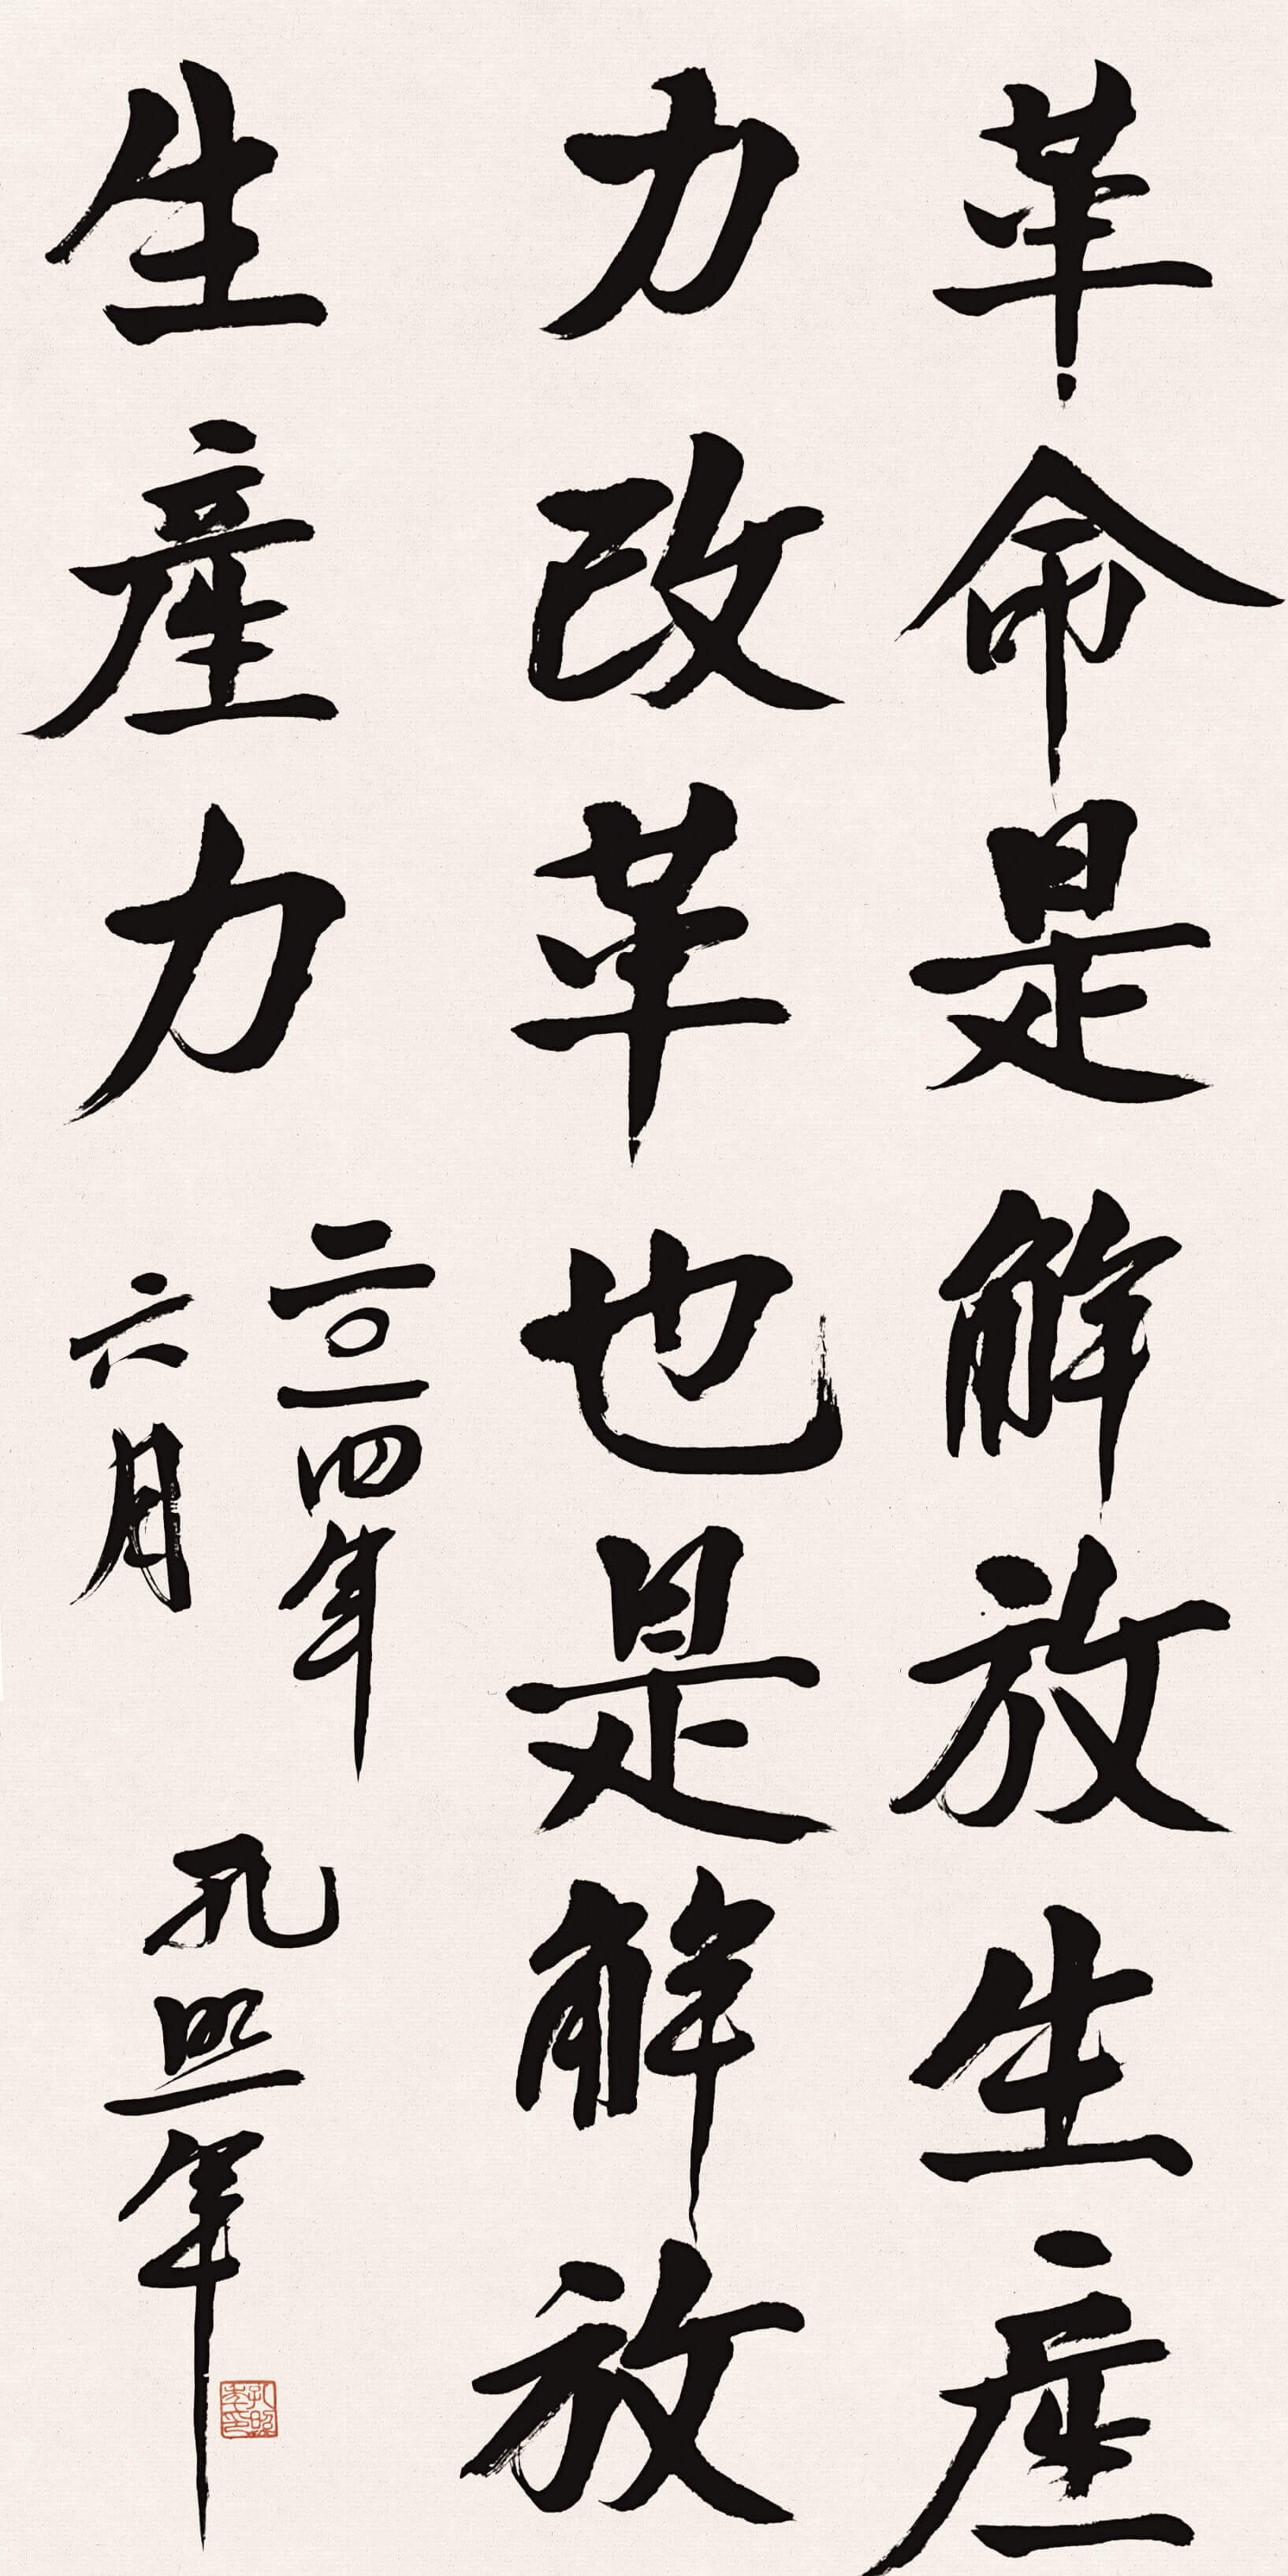 革命是解放生產
力改革也是解放
生產力
二〇一四年
六月
孔照年
孔照年印